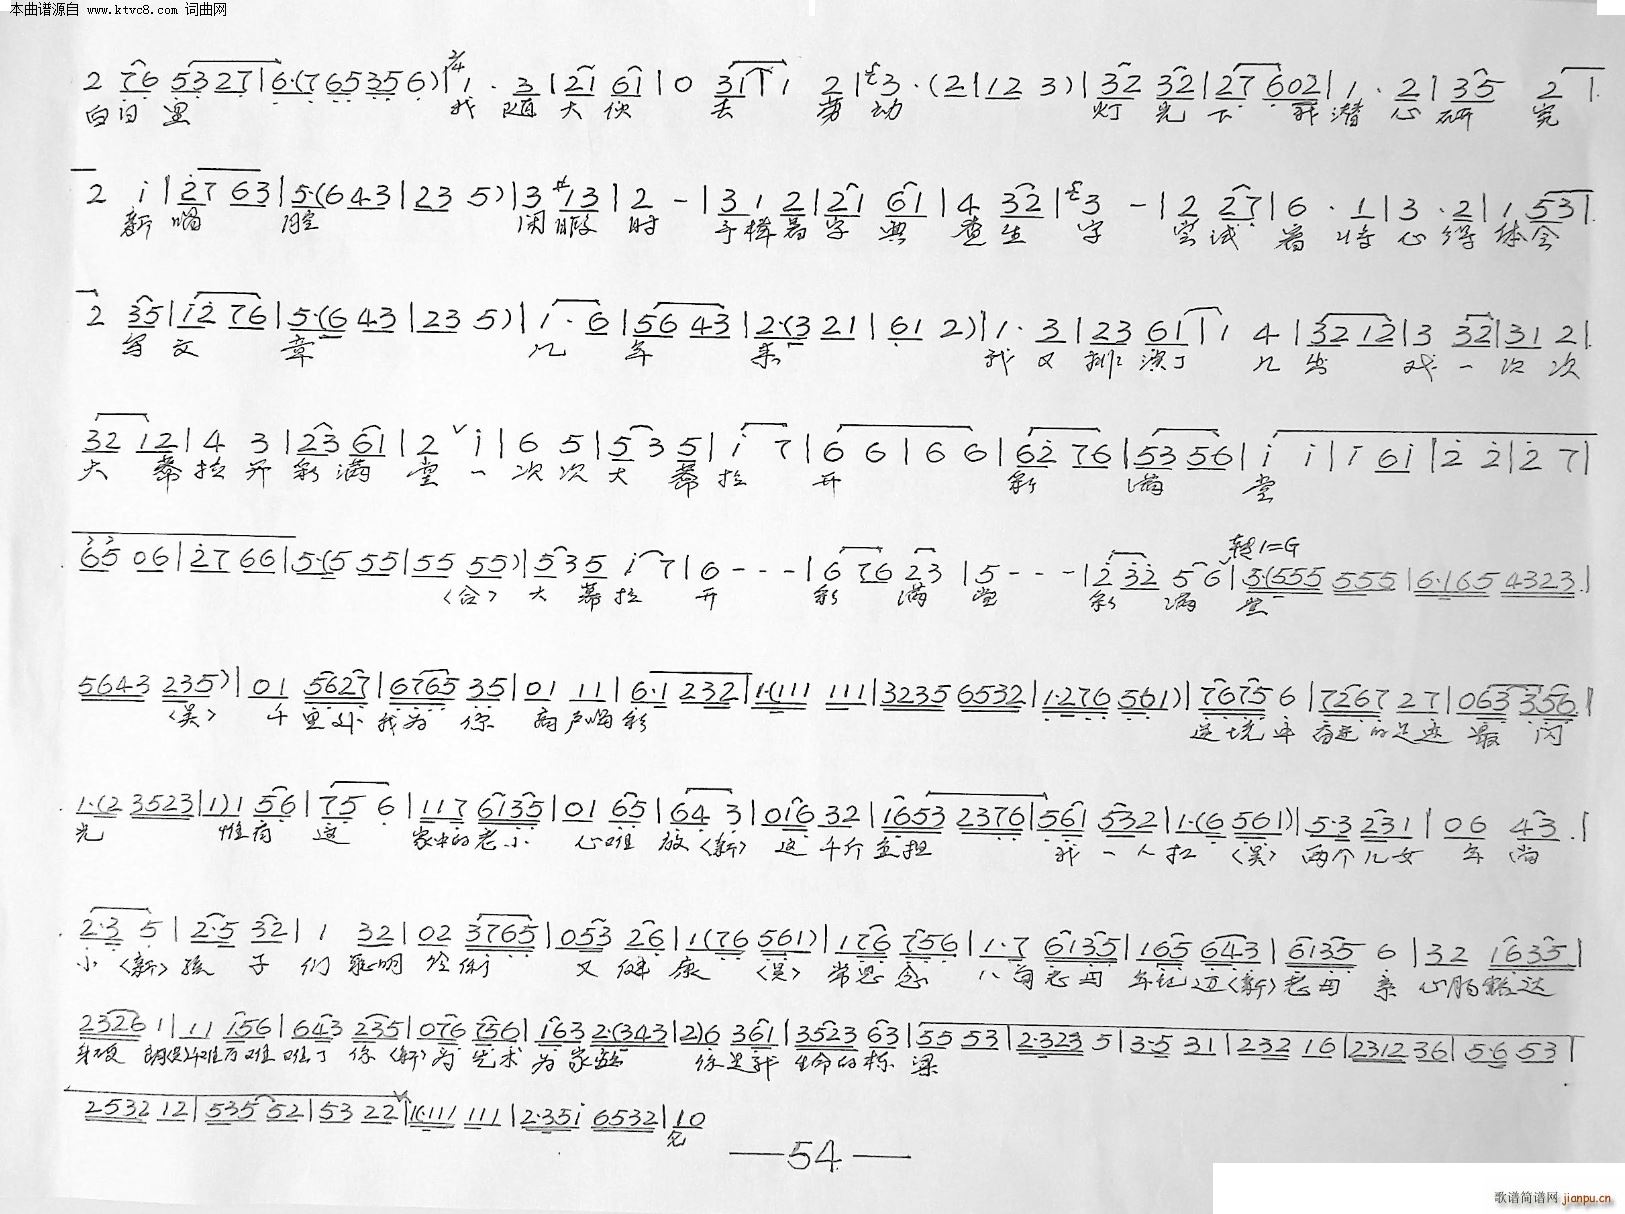 本曲谱源自 www.ktvc8.com 词曲网
2 76 5327|6·(765356)|2/4 1·3|21 61|0 311|1 2|3·(2|12 3)|32 32|27602|1·2|35 2|
白日里 我随大伙去劳动 灯光下我潜心研究
2 i|27 63|5·(643|23 5)|3 #13|2 -|3 1 2|21 61|4 32|3 -|2 27|6·1|3·2|1 53|
新唱腔 闲暇时 手捧着字典查生字 尝试着将心得体会
2 35|i2 76|5·(6 43|23 5)|1·6|56 43|2·(3 21|61 2)|1·3|23 61|1 4|32 12|3 32|31 2|
写文章 几年来 我又排演了几出戏一次次
32 12|4 3|23 61|2 i|6 5|5 3 5|i 7|6 6|6 6|62 76|53 56|i i|i 6i|2 2|2 7|
大幕拉开彩满堂一次次大幕拉开彩满堂
65 06|27 66|5·(5 55|55 55)|535 i 7|6 - - -|6 76 23|5 - - -|2 32 5 6|5·(555 555|6·165 4323|
〈合〉大幕拉开 彩满堂 彩满堂
转1=G
5643 235)|01 5627|6765 35|01 11|6·1 232|1·(111 111|3235 6532|1·276 561)|7675 6|7267 27|063 356|
〈吴〉千里外我为你高声喝彩 这坑中奋进的足迹最闪
1·(2 3523|1)1 56|75 6|117 6135|01 65|64 3|016 32|1653 2376|561 532|1·(6 561)|5·3 231|06 43|
光 惟有这家中的老小心难放〈新〉这千斤重担我一人扛〈吴〉两个儿女年尚
2·3 5|2·5 32|1 32|02 3765|053 26|1(76 561)|176 756|1·7 6135|165 643|6135 6|32 1635|
小〈新〉孩子们聪明伶俐又健康〈吴〉常思念八旬老母年纪迈〈新〉老母亲心胸豁达
23261|11 156|643 235|076 756|163 2·(343|2)6 361|3523 63|55 53|2·323 5|3·5 31|232 16|2312 36|5·6 53|
难了你〈新〉为艺术为家庭 你是我生命的栋梁
2532 12|535 52|53 22|1·111 111|2·35i 6532|10
完
—54—
歌谱简谱网 jianpu.cn